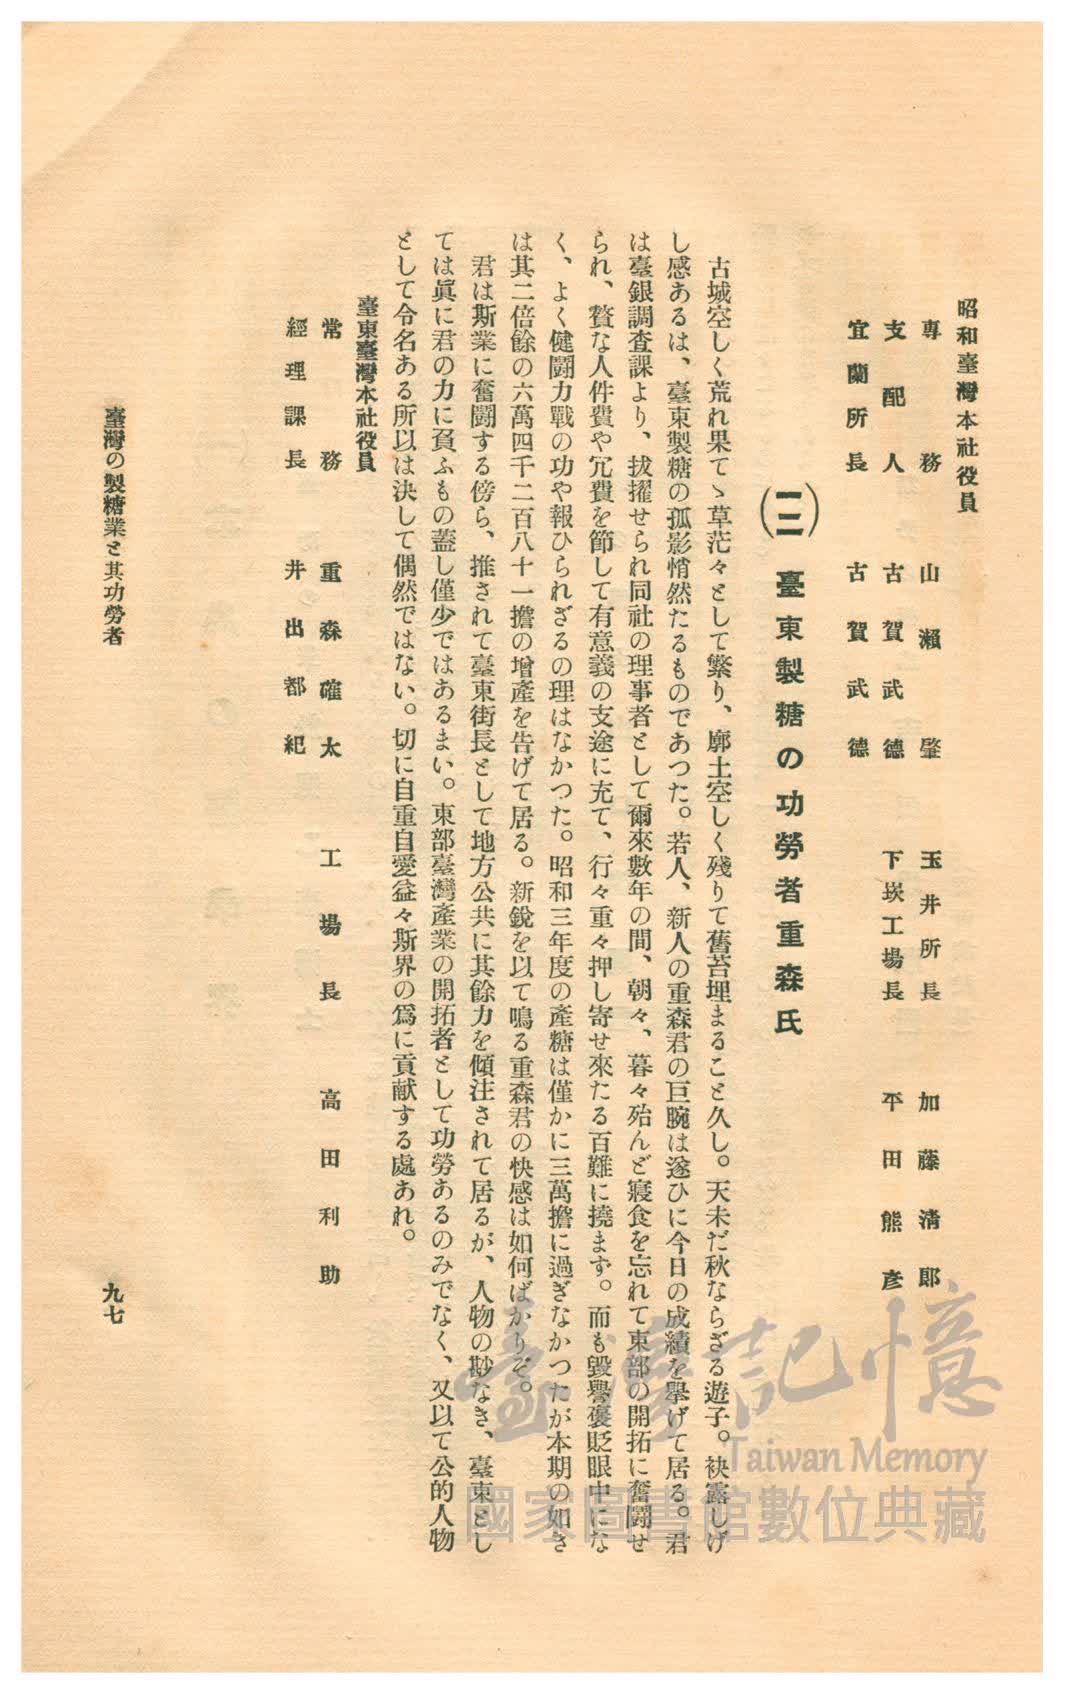 昭和臺灣本社役員
專務 山瀨肇 玉井所長 加藤清郎
支配人 古賀武德 下崁工場長 平田熊彥
宜蘭所長 古賀武德
(一二) 臺東製糖の功勞者重森氏
古城空しく荒れ果てゝ草茫々として繁り、廓土空しく殘りて舊苔埋まること久し。天未だ秋ならざる遊子。袂露しげ
し感あるは、臺東製糖の孤影悄然たるものであつた。若人、新人の重森君の巨腕は遂ひに今日の成績を擧げて居る。君
は臺銀調査課より、拔擢せられ同社の理事者として爾來數年の間、朝々、暮々殆んど寢食を忘れて東部の開拓に奮鬪せ
られ、贅な人件費や冗費を節して有意義の支途に充て、行々重々押し寄せ來たる百難に撓まず。而も毀譽褒貶眼中にな
く、よく健鬪力戰の功や報ひられざるの理はなかつた。昭和三年度の產糖は僅かに三萬擔に過ぎなかつたが本期の如き
は其二倍餘の六萬四千二百八十一擔の增產を告げて居る。新銳を以て鳴る重森君の快感は如何ばかりぞ。
君は斯業に奮鬪する傍ら、推されて臺東街長として地方公共に其餘力を傾注されて居るが、人物の尠なき、臺東とし
ては眞に君の力に負ふもの蓋し僅少ではあるまい。東部臺灣產業の開拓者として功勞あるのみでなく、又以て公的人物
として令名ある所以は決して偶然ではない。切に自重自愛益々斯界の爲に貢獻する處あれ。
臺東臺灣本社役員
常務 重森確太 工場長 高田利助
經理課長 井出都紀
臺灣の製糖業と其功勞者
九七
臺灣記憶
Taiwan Memory
國家圖書館數位典藏